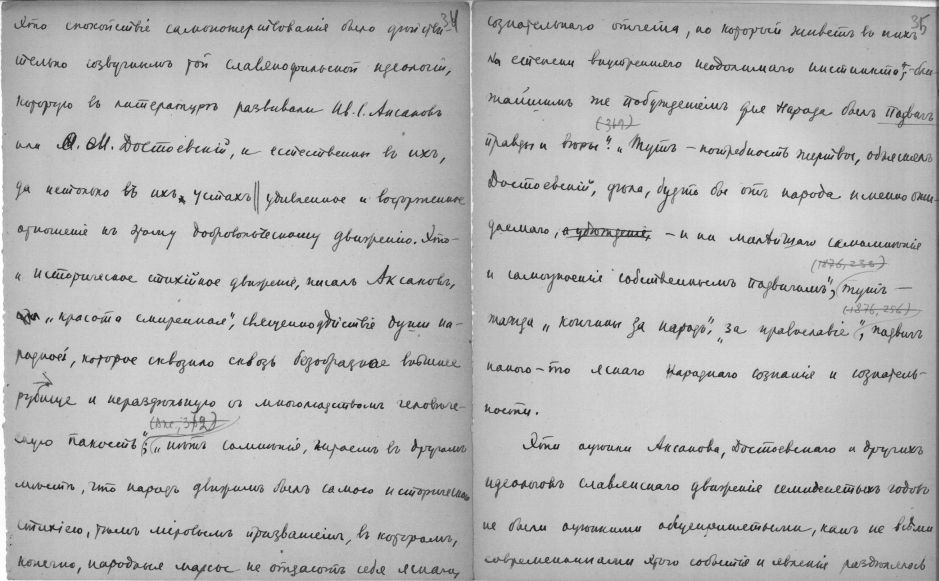 34
Это спокойствіе самопожертвованія было дѣйстви-
тельно созвучнымъ той славянофильской идеологіи,
которую въ литературѣ развивали Ив. С. Аксаковъ
или Ѳ. М. Достоевскій, и естественны въ ихъ,
да не только въ ихъ, устахъ удивленное и восторженное
отношеніе къ этому добровольческому движенію. Это-
и историческое стихійное движеніе, писалъ Аксаковъ,
„красота смиренная", священнодѣйствіе души на-
родной, которое сквозило сквозь безобразное внѣшнее
рубище и нераздѣльную съ многолюдствомъ человѣче-
(Акс, 312)
скую пакость"; „нѣтъ сомнѣнія, читаемъ въ другомъ
мѣстѣ, что народъ движимъ былъ самою историческою
стихіею, тѣмъ міровымъ призваніемъ, въ которомъ,
конечно, народныя массы не отдаютъ себѣ яснаго,
35
сознательнаго отчета, но который живетъ въ нихъ
на степени внутренняго неодолимаго инстинкта", бли-
жайшимъ же побужденіемъ для народа былъ подвигъ
(319)
правды и вѣры". „Тутъ – потребность жертвы, объяснялъ
Достоевскій, дѣла, будто бы отъ народа именно ожи-
даемаго, а убѣжденія, – и ни малѣйшаго самомнѣнія
(1876, 233)
и самоупоенія собственнымъ подвигомъ", тутъ –
(1876, 256)
жажда „кончины за народъ", „за православіе", подвигъ
какого-то яснаго народнаго сознанія и сознатель-
ности.
Эти оцѣнки Аксакова, Достоевскаго и другихъ
идеологовъ славянскаго движенія семидесятыхъ годовъ
не были оцѣнками общепринятыми, какъ не всѣми
современниками этого событія и явленія раздѣлялось